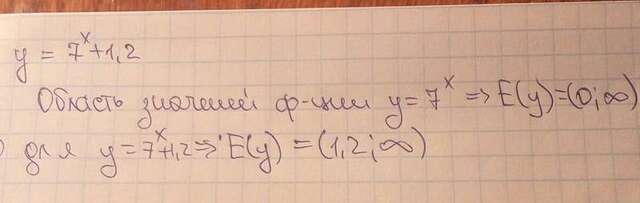 y = 7^x+1,2
Область значений ф-ции y=7^x => E(y)=(0;∞)
для y=7^x+1,2 => E(y) = (1,2;∞)